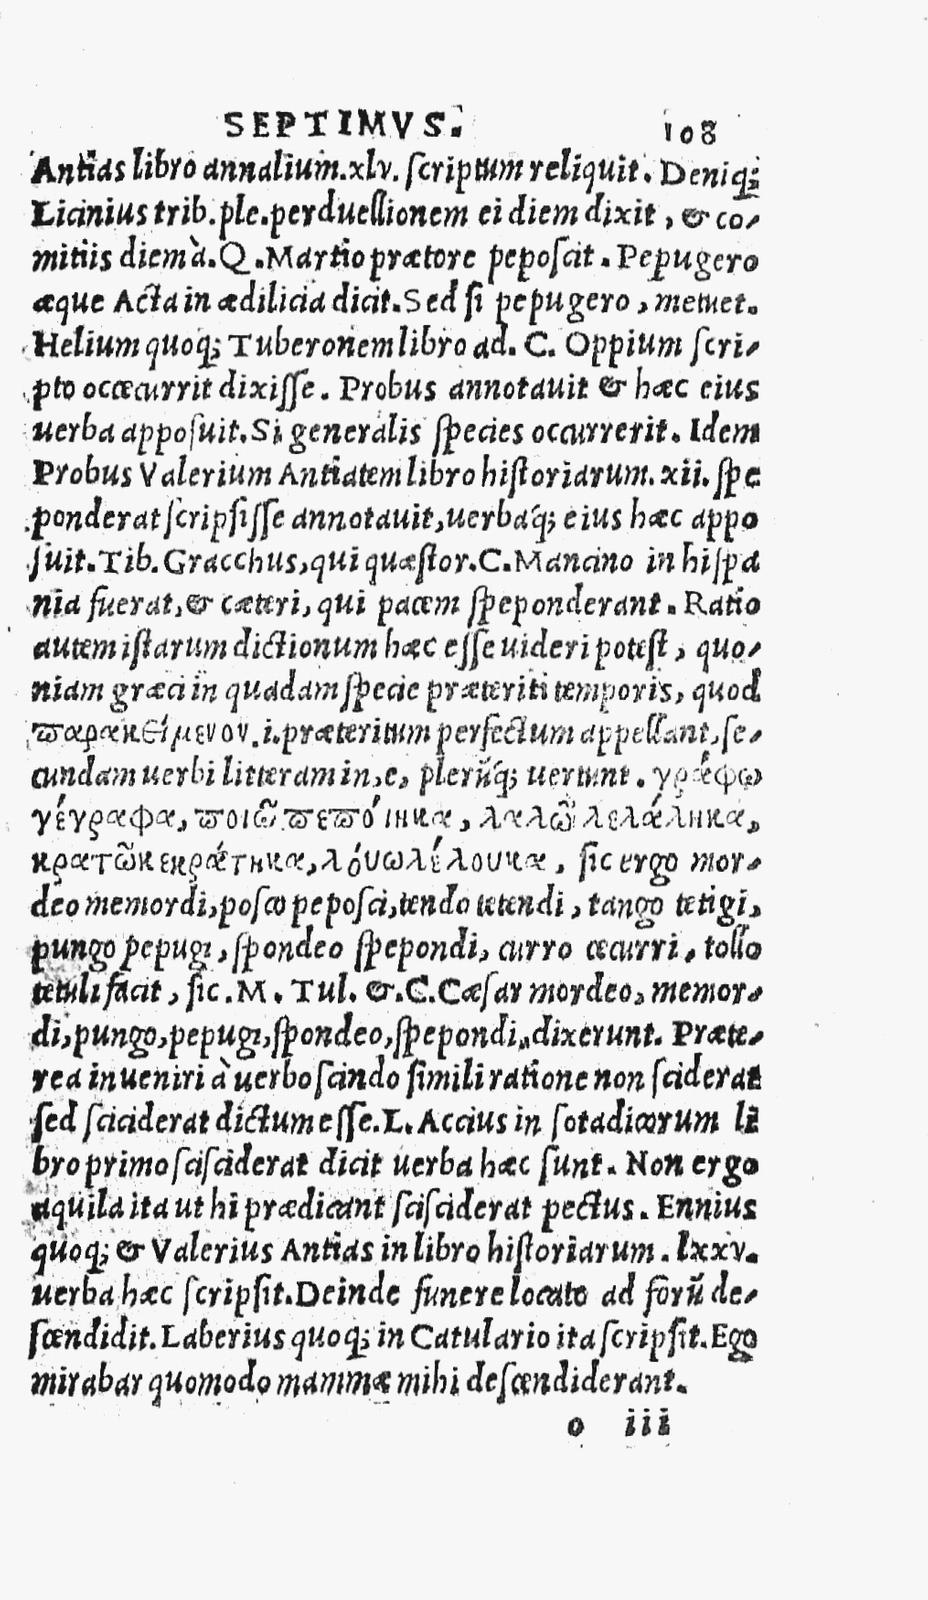 SEPTIMVS. 108
Antias libro annalium.xlv. ſcriptum reliquit. Deniq;
Licinius trib. ple. perduellionem ei diem dixit, & co-
mitiis diem à. Q. Martio prætore pepoſcit. Pepugero
æque Acta in ædilicia dicit. Sed ſi pepugero, metuet.
Helium quoq; Tuberonem libro ad. C. Oppium ſcri-
pto occecurrit dixiſſe. Probus annotauit & hæc eius
uerba appoſuit. Si generalis ſpecies occurrerit. Idem
Probus Valerium Antiatem libro hiſtoriarum. xii. ſpe
ponderat ſcripſiſſe annotauit, uerbaq́; eius hæc appo
ſuit. Tib. Gracchus, qui quæſtor. C. Mancino in hiſpa
nia fuerat, & cæteri, qui pacem ſpeponderant. Ratio
autem iſtarum dictionum hæc eſſe uideri poteſt, quo-
niam græci in quadam ſpecie præteriti temporis, quod
ϖαρακείμενον. i. præteritum perfectum appellant, ſe-
cundam uerbi litteram in, e, plerūq́; uertunt. γράφω
γέγραφα, ϖοιῶ ϖεϖόιηκα, λαλῶ λελάληκα,
κρατῶ κεκράτηκα, λόυω λέλουκα, ſic ergo mor-
deo memordi, poſco pepoſci, tendo tetendi, tango tetigi,
pungo pepugi, ſpondeo ſpepondi, curro cecurri, tollo
tetuli facit, ſic. M. Tul. &. C. Cæſar mordeo, memor-
di, pungo, pepugi, ſpondeo, ſpepondi, dixerunt. Præte-
rea inueniri à uerbo ſcindo ſimili ratione non ſciderat
ſed ſciciderat dictum eſſe. L. Accius in ſotadicorum li
bro primo ſciſciderat dicit uerba hæc ſunt. Non ergo
aquila ita ut hi prædicant ſciſciderat pectus. Ennius
quoq; & Valerius Antias in libro hiſtoriarum. lxxv.
uerba hæc ſcripſit. Deinde funere locato ad forū de-
ſcendidit. Laberius quoq; in Catulario ita ſcripſit. Ego
mirabar quomodo mammæ mihi deſcendiderant.
o iii